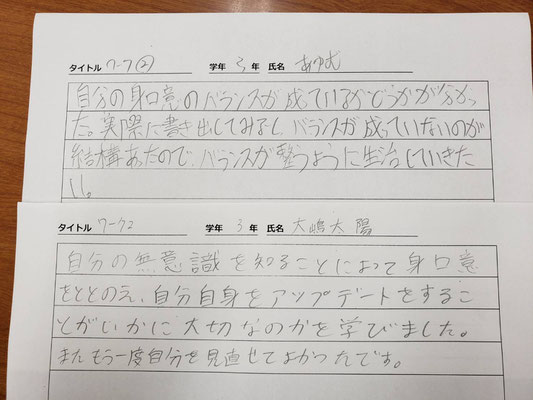 タイトル ワーク② 学年 3 年 氏名 あゆむ
自分の身口意のバランスが成ているかどうかが分かっ
た。実際に書き出してみるし、バランスが成っていないのが
結構あったので、バランスが整うように生活していきた
い。
タイトル ワーク2 学年 3 年 氏名 大嶋太陽
自分の無意識を知ることによって身口意
をととのえ、自分自身をアップデートをするこ
とがいかに大切なのかを学びました。
またもう一度自分を見直せてよかったです。